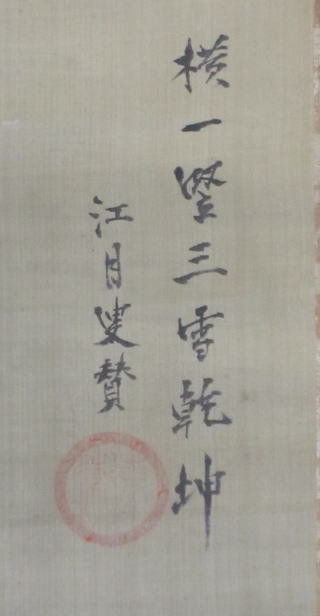 横一豎三雪乾坤
江月叟賛